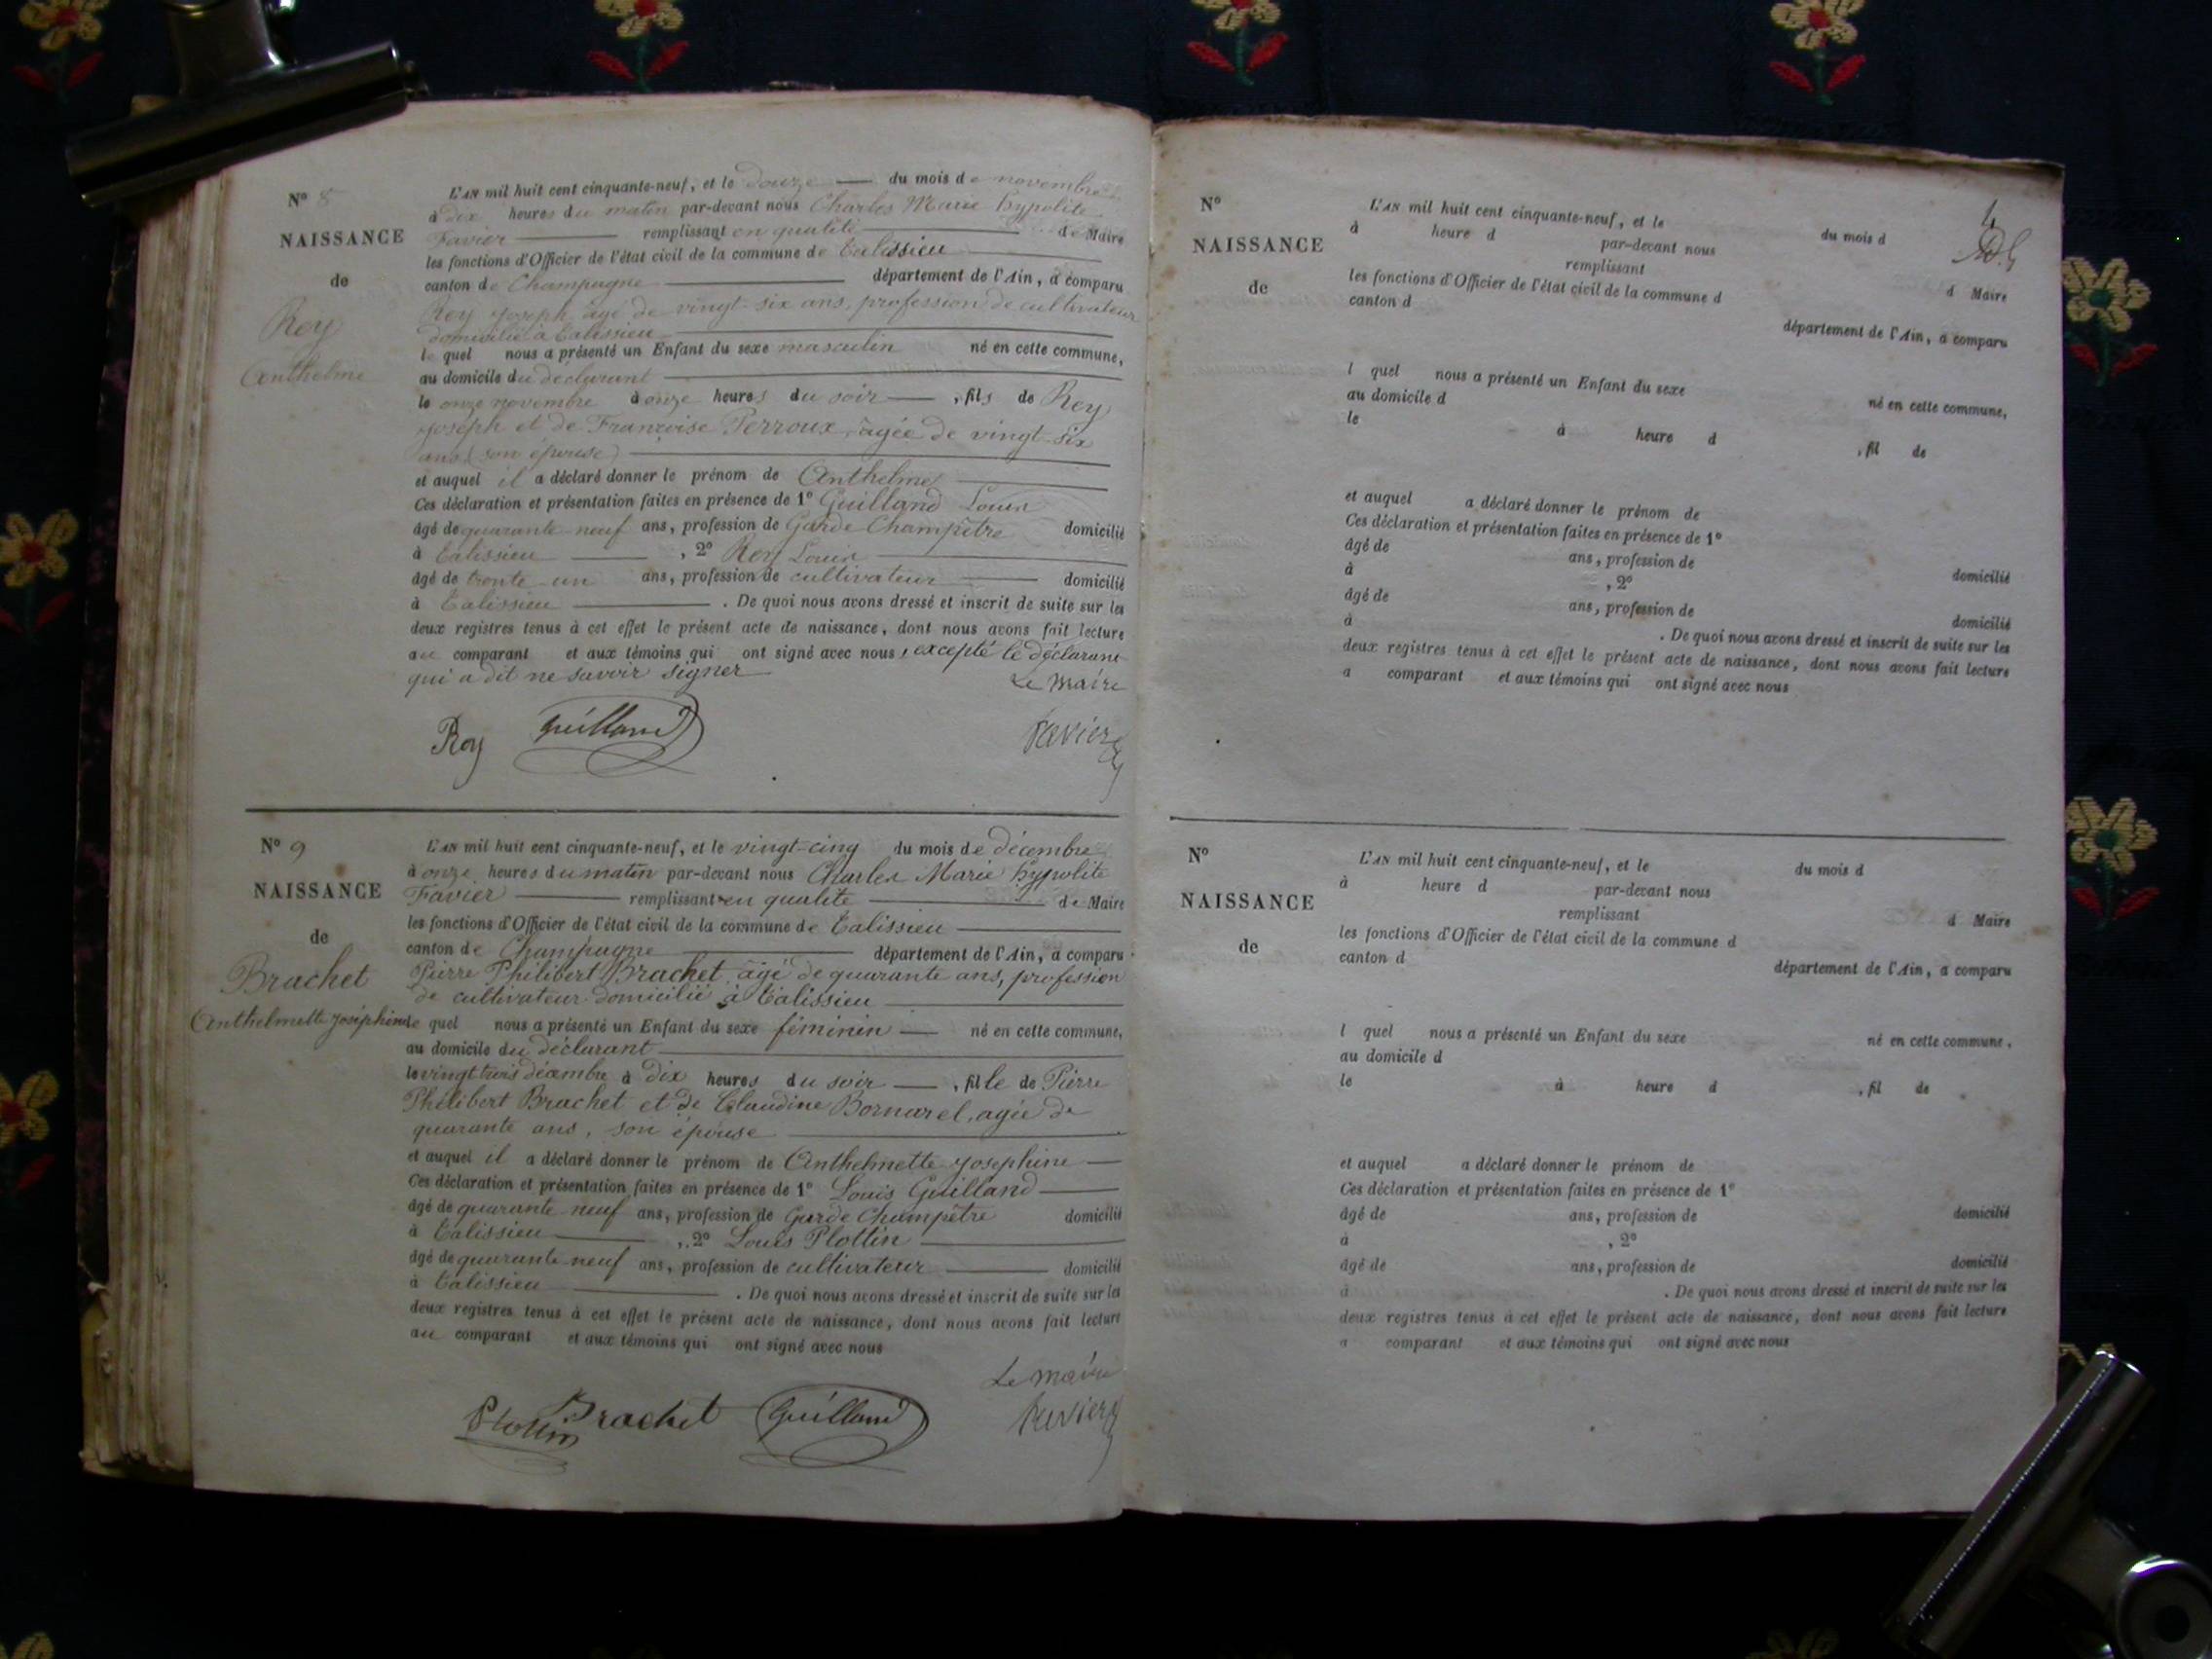 N° 8
NAISSANCE
de
Rey
Anthelme
L'AN mil huit cent cinquante-neuf, et le douze du mois de novembre
à dix heures du matin par-devant nous Charles Marie hypolite
Favier remplissant en qualité de Maire
les fonctions d'Officier de l'état civil de la commune de Talissieu
canton de Champagne département de l'Ain, a comparu
Rey Joseph âgé de vingt-six ans, profession de cultivateur
domicilié à Talissieu
le quel nous a présenté un Enfant du sexe masculin né en cette commune,
au domicile du déclarant
le onze novembre à onze heures du soir, fils de Rey
Joseph et de Françoise Perroux, âgée de vingt-six
ans (son épouse)
et auquel il a déclaré donner le prénom de Anthelme
Ces déclaration et présentation faites en présence de 1° Guilland Louis
âgé de quarante-neuf ans, profession de Garde Champêtre domicilié
à Talissieu, 2° Rey Louis
âgé de trente-un ans, profession de cultivateur domicilié
à Talissieu. De quoi nous avons dressé et inscrit de suite sur les
deux registres tenus à cet effet le présent acte de naissance, dont nous avons fait lecture
au comparant et aux témoins qui ont signé avec nous, excepté le déclarant
qui a dit ne savoir signer
Le maire
Rey Guilland Favier
N° 9
NAISSANCE
de
Brachet
Anthelmette Josephine
L'AN mil huit cent cinquante-neuf, et le vingt-cinq du mois de décembre
à onze heures du matin par-devant nous Charles Marie hypolite
Favier remplissant en qualité de Maire
les fonctions d'Officier de l'état civil de la commune de Talissieu
canton de Champagne département de l'Ain, a comparu
Pierre Philibert Brachet âgé de quarante ans, profession
de cultivateur domicilié à Talissieu
le quel nous a présenté un Enfant du sexe féminin né en cette commune,
au domicile du déclarant
le vingt trois décembre à dix heures du soir, fille de Pierre
Philibert Brachet et de Claudine Bornarel, agée de
quarante ans, son épouse
et auquel il a déclaré donner le prénom de Anthelmette Josephine
Ces déclaration et présentation faites en présence de 1° Louis Guilland
âgé de quarante-neuf ans, profession de Garde Champêtre domicilié
à Talissieu, 2° Louis Plottin
âgé de quarante-neuf ans, profession de cultivateur domicilié
à Talissieu. De quoi nous avons dressé et inscrit de suite sur les
deux registres tenus à cet effet le présent acte de naissance, dont nous avons fait lecture
au comparant et aux témoins qui ont signé avec nous
Le maire
Plottin Brachet Guilland Favier
4
N°
NAISSANCE
de
L'AN mil huit cent cinquante-neuf, et le du mois d
à heure d par-devant nous
remplissant d Maire
les fonctions d'Officier de l'état civil de la commune d
canton d département de l'Ain, a comparu
l quel nous a présenté un Enfant du sexe né en cette commune,
au domicile d
le à heure d , fil de
et auquel a déclaré donner le prénom de
Ces déclaration et présentation faites en présence de 1°
âgé de ans, profession de domicilié
à , 2°
âgé de ans, profession de domicilié
à . De quoi nous avons dressé et inscrit de suite sur les
deux registres tenus à cet effet le présent acte de naissance, dont nous avons fait lecture
a comparant et aux témoins qui ont signé avec nous
N°
NAISSANCE
de
L'AN mil huit cent cinquante-neuf, et le du mois d
à heure d par-devant nous
remplissant d Maire
les fonctions d'Officier de l'état civil de la commune d
canton d département de l'Ain, a comparu
l quel nous a présenté un Enfant du sexe né en cette commune,
au domicile d
le à heure d , fil de
et auquel a déclaré donner le prénom de
Ces déclaration et présentation faites en présence de 1°
âgé de ans, profession de domicilié
à , 2°
âgé de ans, profession de domicilié
à . De quoi nous avons dressé et inscrit de suite sur les
deux registres tenus à cet effet le présent acte de naissance, dont nous avons fait lecture
a comparant et aux témoins qui ont signé avec nous